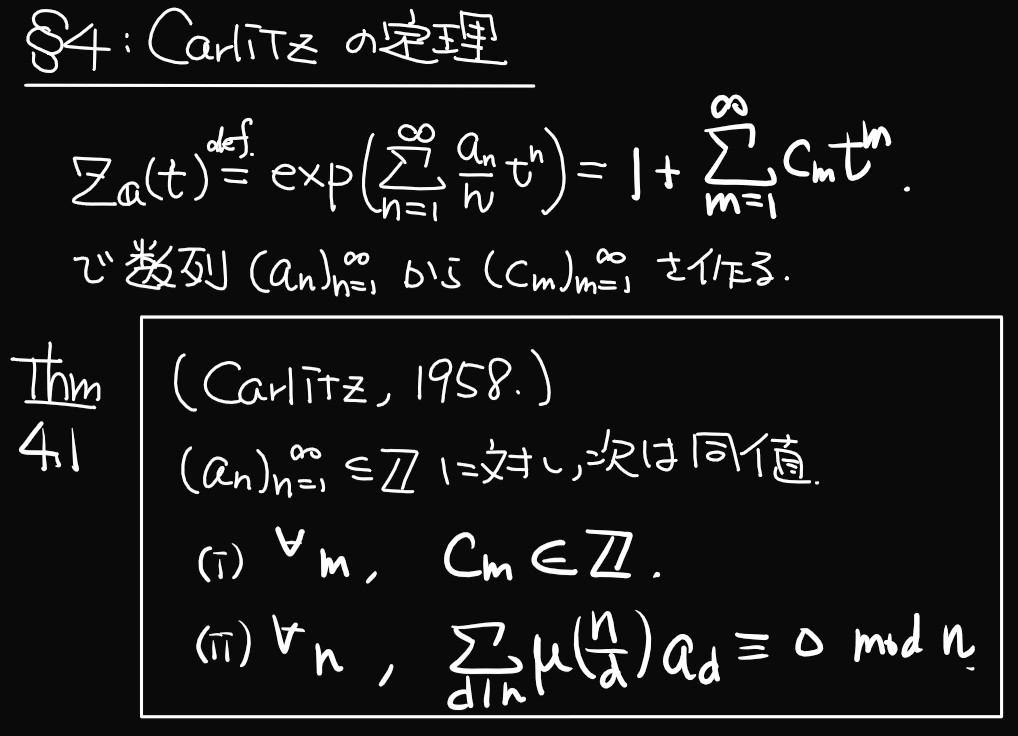 §4: Carlitz の定理
Z_a(t) def.= exp(∑_{n=1}^{∞} a_n/n t^n) = 1 + ∑_{m=1}^{∞} c_m t^m.
で 数列 (a_n)_{n=1}^{∞} から (c_m)_{m=1}^{∞} を作る.
Thm 4.1
(Carlitz, 1958.)
(a_n)_{n=1}^{∞} ∈ ℤ に対し, 次は同値.
(i) ∀m, c_m ∈ ℤ.
(ii) ∀n, ∑_{d|n} μ(n/d) a_d ≡ 0 mod n.